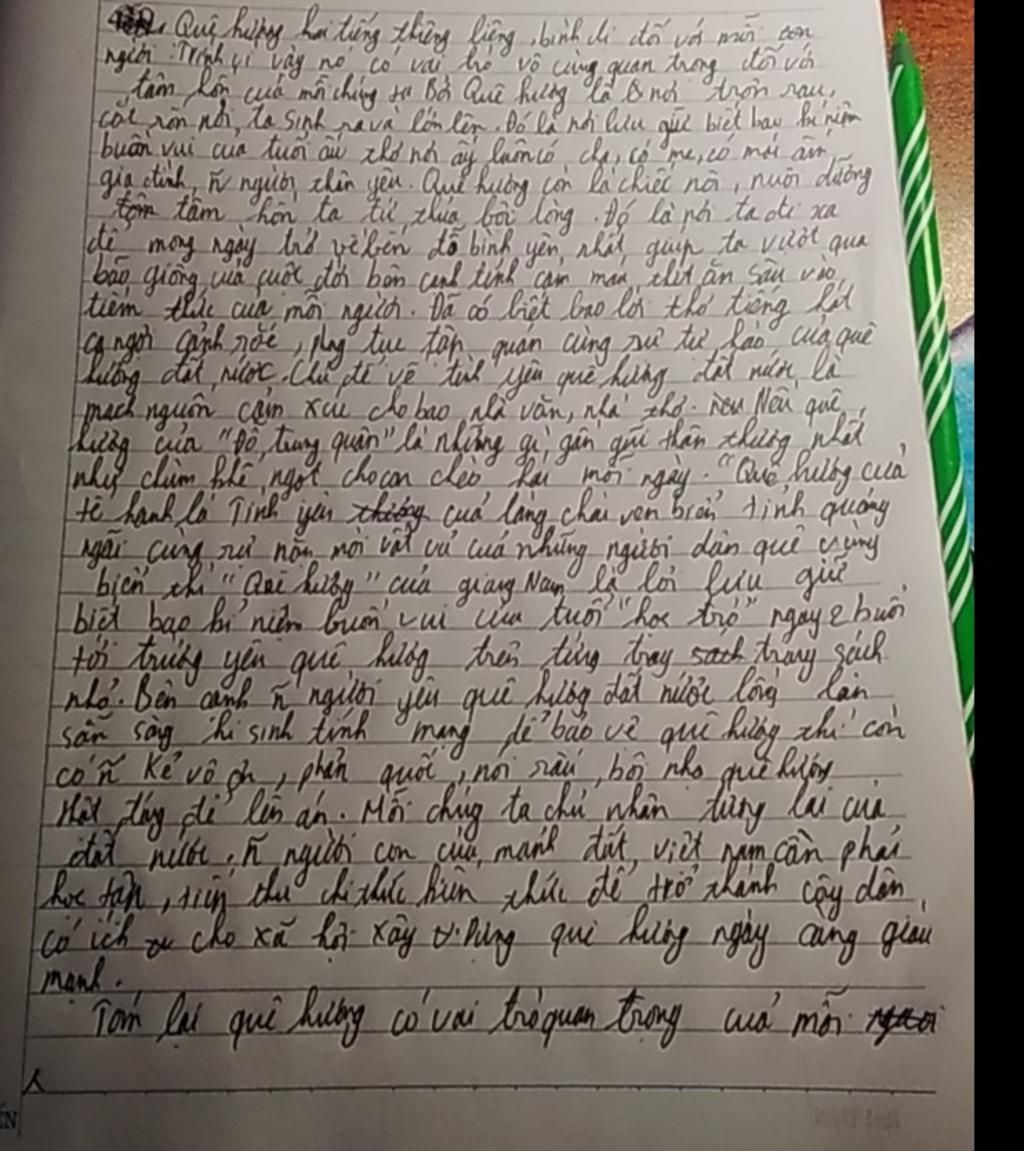 Quê hương hai tiếng thiêng liêng, bình dị đối với mỗi con
người Trính vì vậy nó có vai trò vô cùng quan trong đối với
tâm hồn của mỗi chúng ta Bởi Quê hương là nơi trôn rau,
cắt rốn nơi, ta sinh ra và lớn lên. Đó là nơi lưu giữ biết bao kỉ niệm
buồn vui của tuổi ấu thơ nơi ấy luôn có cha, có mẹ, có mái ấm
gia đình, ñ người thân yêu. Quê hương còn là chiếc nôi, nuôi dưỡng
tâm hồn ta từ thủa bôi lòng. Đó là nơi ta đi xa
để mong ngày trở về bến đỗ bình yên, nhất, giúp ta vượt qua
bão giông của cuộc đời bên cạnh tình cảm máu thịt ăn sâu vào
tiềm thức của mỗi người. Đã có biết bao lời thơ tiếng hát
ca ngợi cảnh sắc, phog tục tập quán cùng sự tự hào của quê
hương đất nước. Chủ đề về tình yêu quê hương đất nước là
mạch nguồn cảm xúc cho bao nhà văn, nhà thơ. Nếu quê
hương của "Đỗ trung quân" là những gì gần gũi thân thương nhất
như chùm khế ngọt cho con chèo hái mỗi ngày. "Quê hương của
tế hanh là Tình yêu của làng chài ven biển tỉnh quảng
ngãi cùng sự nồn nỗi vất vả của những người dân quê vùng
biển thì "Quê hương" của giang Nam là lời lưu giữ
biết bao kỉ niệm buồn vui của tuổi "học trò" ngày 2 buổi
tới trường yêu quê hương trên từng trag sách
nhỏ. Bên cạnh ñ người yêu quê hương đất nước lồng làn
sẵn sàng hi sinh tính mạng để bảo vệ quê hương thì còn
có ñ kẻ vô ơn, phản quốc, nói xấu, bôi nhọ quê hương
thật đág để lên án. Mỗi chúg ta chủ nhân tươg lai của
đất nước, ñ người con của mảnh đất việt nam cần phải
học tập, tiếp thu chi thức kiến thức để trở thành côg dân
có ích cho xã hội xây dựng quê hương ngày càng giàu
mạnh.
Tóm lại quê hương có vai trò quan trọng của mỗi